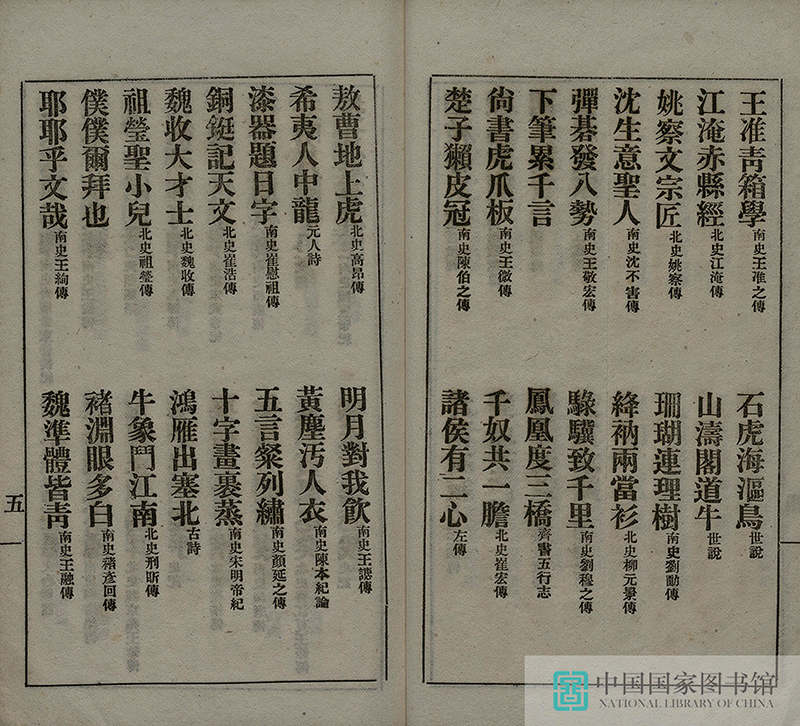 王准靑箱學南史王准之傳
石虎海漚鳥世說
江淹赤縣經北史江淹傳
山濤閣道牛世說
姚察文宗匠北史姚察傳
珊瑚連理樹南史劉勔傳
沈生意聖人南史沈不害傳
絳衲兩當衫北史柳元景傳
彈棊發八勢南史王敬宏傳
騄驥致千里南史劉穆之傳
下筆累千言
鳳凰度三橋齊書五行志
尙書虎爪板南史王微傳
千奴共一膽北史崔宏傳
楚子獺皮冠南史陳伯之傳
諸侯有二心左傳
敖曹地上虎北史高昂傳
明月對我飮南史王譓傳
希夷人中龍元人詩
黃塵汚人衣南史陳本紀論
漆器題日字南史崔慰祖傳
五言粲列繡南史顏延之傳
銅鋌記天文北史崔浩傳
十字畫裹蒸南史宋明帝紀
魏收大才士北史魏收傳
鴻雁出塞北古詩
祖瑩聖小兒北史祖瑩傳
牛象鬥江南北史刑昕傳
僕僕爾拜也
褚淵眼多白南史褚彥回傳
耶耶乎文哉南史王絢傳
魏準體皆靑南史王融傳
五
中国国家图书馆
NATIONAL LIBRARY OF CHINA